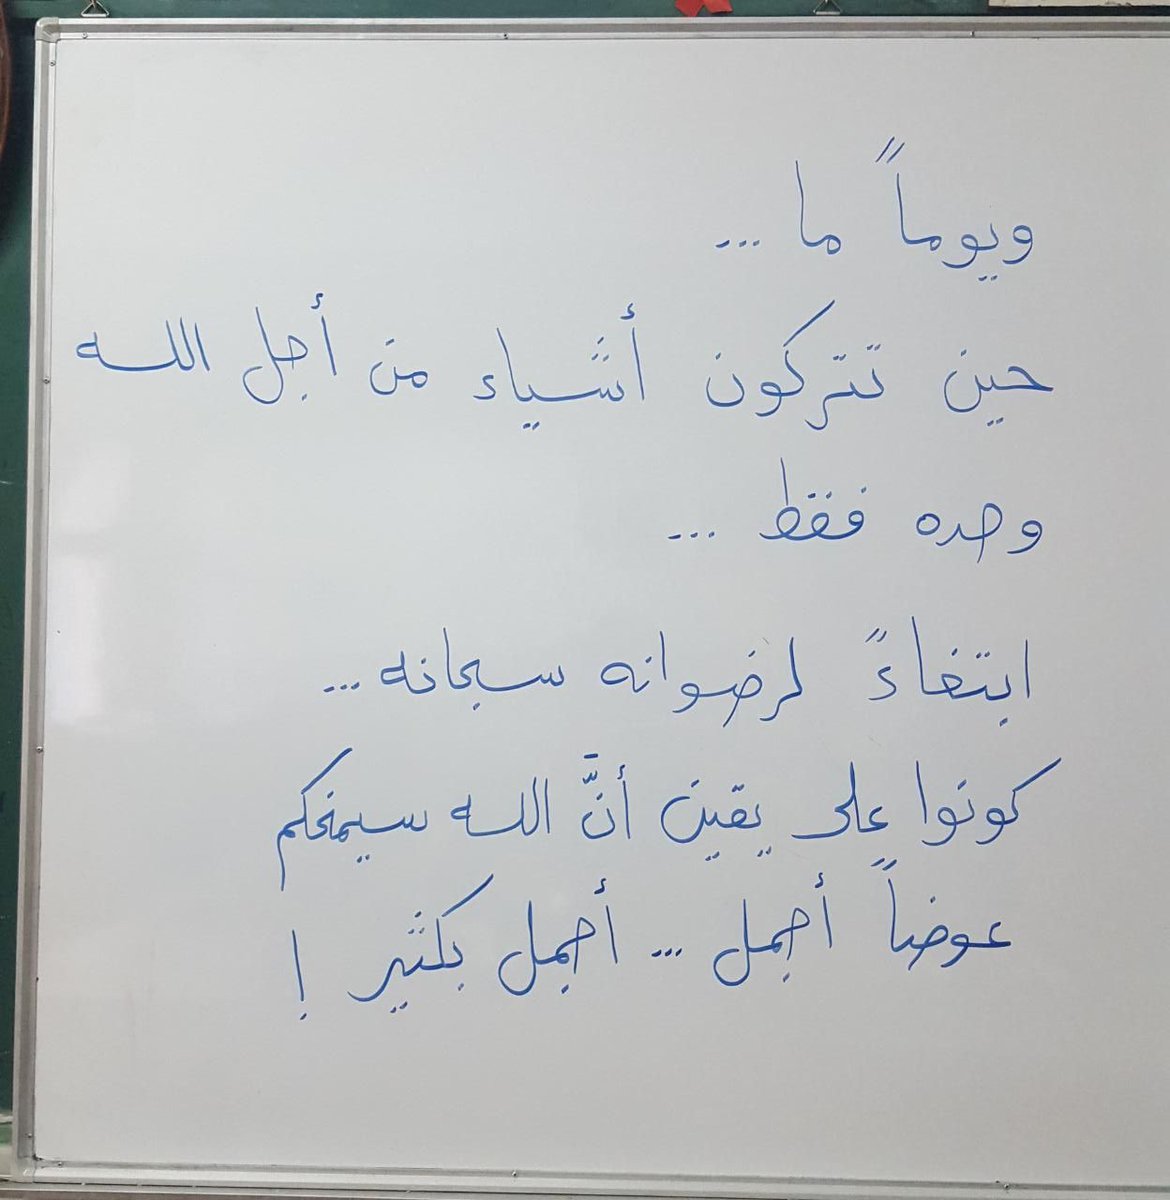 ويوماً ما ...
حين تتركون أشياء من أجل الله
وحده فقط ...
ابتغاءً لرضوانه سبحانه ...
كونوا على يقين أنَّ الله سيمنحكم
عوضاً أجمل ... أجمل بكثير !